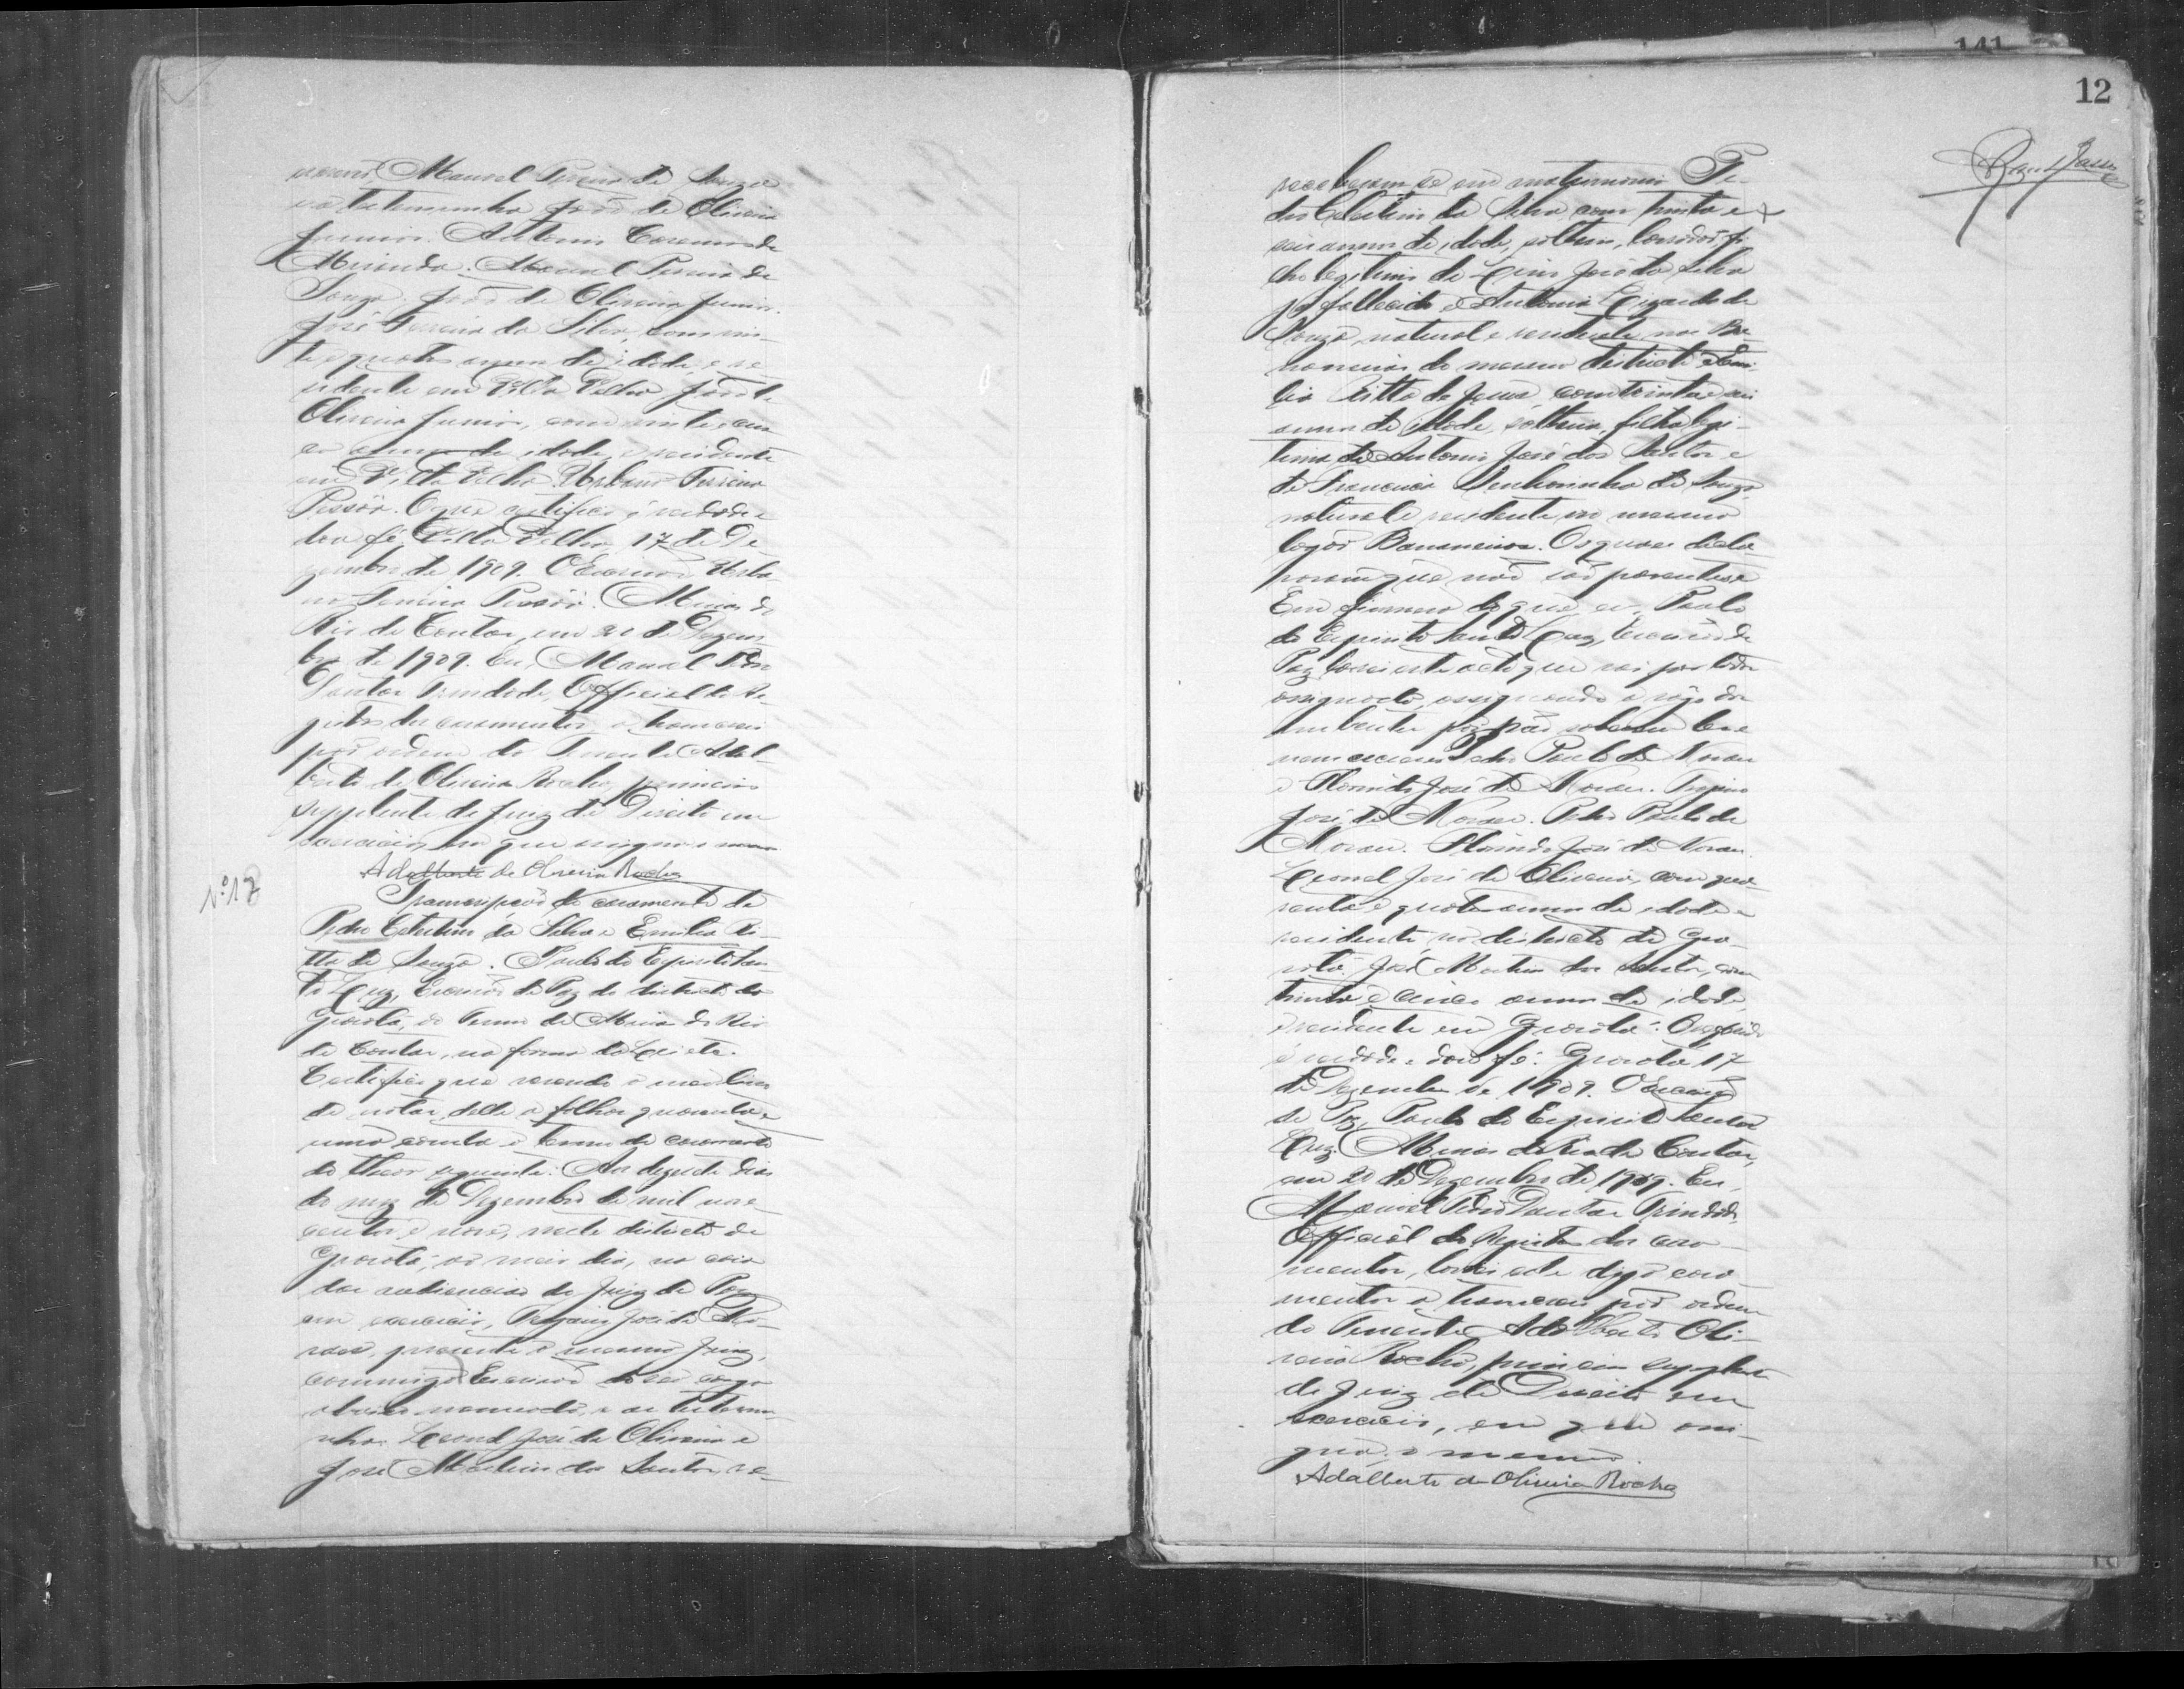 Manoel Pereira de Souza
e a testemunha João de Oliveira
Junior. Antonio Casemiro de
Miranda. Manoel Pereira de
Souza. João de Oliveira Junior.
José Pereira da Silva, com vin-
te e quatro annos de idade, e re-
sidente em Villa Velha João de
Oliveira Junior, com vinte e cin
co annos de idade, e residente
em Villa Velha. Urbano Ferreira
Pessôa. O que certifico é verdade e
dou fé. Villa Velha 17 de De
zembro de 1909. O Escrivão Urba
no Ferreira Pessôa. Minas do
Rio de Contas, em 21 de Dezem
bro de 1909. Eu, Manoel Pedro
Dantas Trindade, Official do Re
gistro dos casamentos, o transcrevi
por ordem do Tenente Adal-
berto de Oliveira Rocha, primeiro
supplente de Juiz de Direito em
exercicio, em que assigna o mesmo
Adalberto de Oliveira Rocha
Nº 17
Transcripção do casamento de
Pedro Celestino da Silva e Emilia Ri-
tta de Souza. Paulo do Espirito San
to Cruz, Escrivão de Paz do districto do
do Termo de Minas do Rio
de Contas, na forma da Lei etc.
Certifico que revendo o meu livro
de notas, delle a folhas quarenta e
uma consta o termo de casamento
do theor seguinte: Aos dezesete dias
do mez de Dezembro de mil nove
centos e nove, neste districto de
ao meio dia, na casa
das audiencias do Juiz de Paz
em exercicio, José de Mo-
raes, presente o mesmo Juiz,
commigo Escrivão de seu cargo
abaixo nomeado, e as testemu
nhas Leonel José de Oliveira e
José Martins dos Santos, re-
12
receberam-se em matrimonio Pe-
dro Celestino da Silva com trinta e
seis annos de idade, solteiro, lavrador, fi
lho legitimo de José da Silva
já fallecido e Antonia de
Souza, natural e residente nas Ba
naneiras do mesmo districto e Emi
lia Ritta de Jesus com trinta e seis
annos de idade, solteira, filha legi-
tima de Antonio José dos Santos e
de Francisca Senhorinha de Souza
natural e residente no mesmo
logar Bananeiras. Os quaes decla
raram que não são parentes.
Em firmeza do que eu, Paulo
do Espirito Santo Cruz, Escrivão de
Paz, lavrei este acto que vai por todos
assignado, assignando a rogo dos
nubentes por não saberem ler e
nem escrever Pedro Paulo de Moraes
e Florindo José de Moraes.
José de Moraes. Pedro Paulo de
Moraes. Florindo José de Moraes.
Leonel José de Oliveira, com qua
renta e quatro annos de idade e
residente no districto de
José Martins dos Santos, com
trinta e cinco annos de idade,
e residente em
é verdade e dou fé. 17
de Dezembro de 1909. O Escrivão
de Paz, Paulo do Espirito Santo
Cruz. Minas do Rio de Contas,
em 21 de Dezembro de 1909. Eu,
Manoel Pedro Dantas Trindade,
Official do Registro dos casa-
mentos, lavrei este casa-
mentos o transcrevi por ordem
do Tenente Adalberto Oli-
veira Rocha, primeiro supplente
de Juiz de Direito em
exercicio, em que assi-
gna o mesmo.
Adalberto de Oliveira Rocha